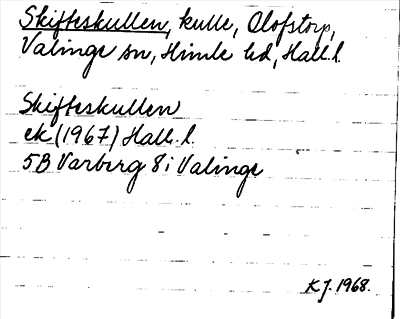 Skifteskullen, kulle, Olofstorp,
Valinge sn, Himle hd, Hall. l.
Skifteskullen
ek (1967) Hall. l.
5B Varberg 8i Valinge
KJ. 1968.